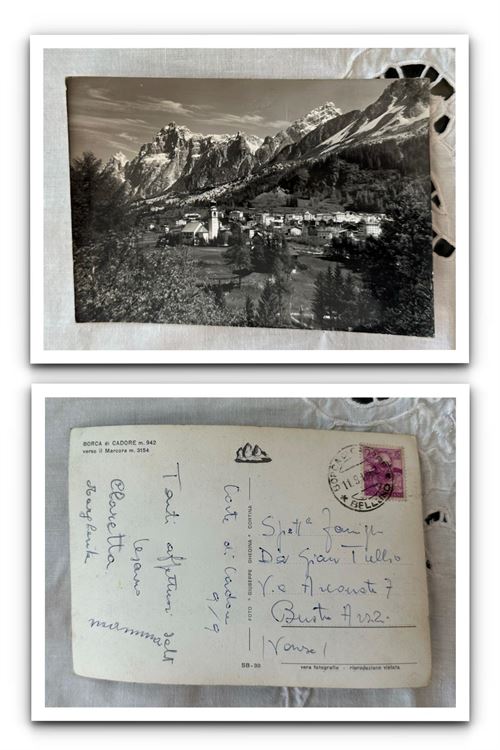 BORCA di CADORE m. 942
verso il Marcora m. 3154
Tanti affettuosi saluti
Claretta
Margherita
mamma
FOTO GIUSEPPE GHEDINA * CORTINA
di Cadore
9/9
Spett. Famiglia
De Gian Tullio
Via 7
Busto Arsiz.
(Varese)
BELLUNO
SB-90
vera fotografia - riproduzione vietata